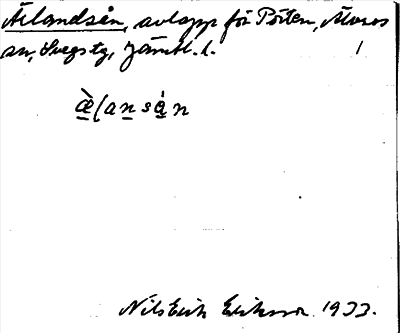 Ärlandsån, avlopp för Pörten, Älvros
sn, Svegs tg, Jämtl. l. 1
æ̀lansån
Nils Erik Eriksson 1933.